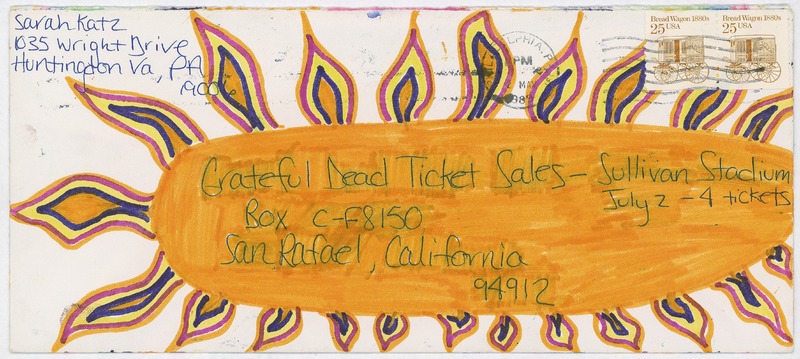 Sarah Katz
1035 Wright Drive
Huntingdon Va, PA
19006
Bread Wagon 1880s
25 USA
Bread Wagon 1880s
25 USA
PM
198
Grateful Dead Ticket Sales - Sullivan Stadium
July 2 - 4 tickets
Box C-F8150
San Rafael, California
94912